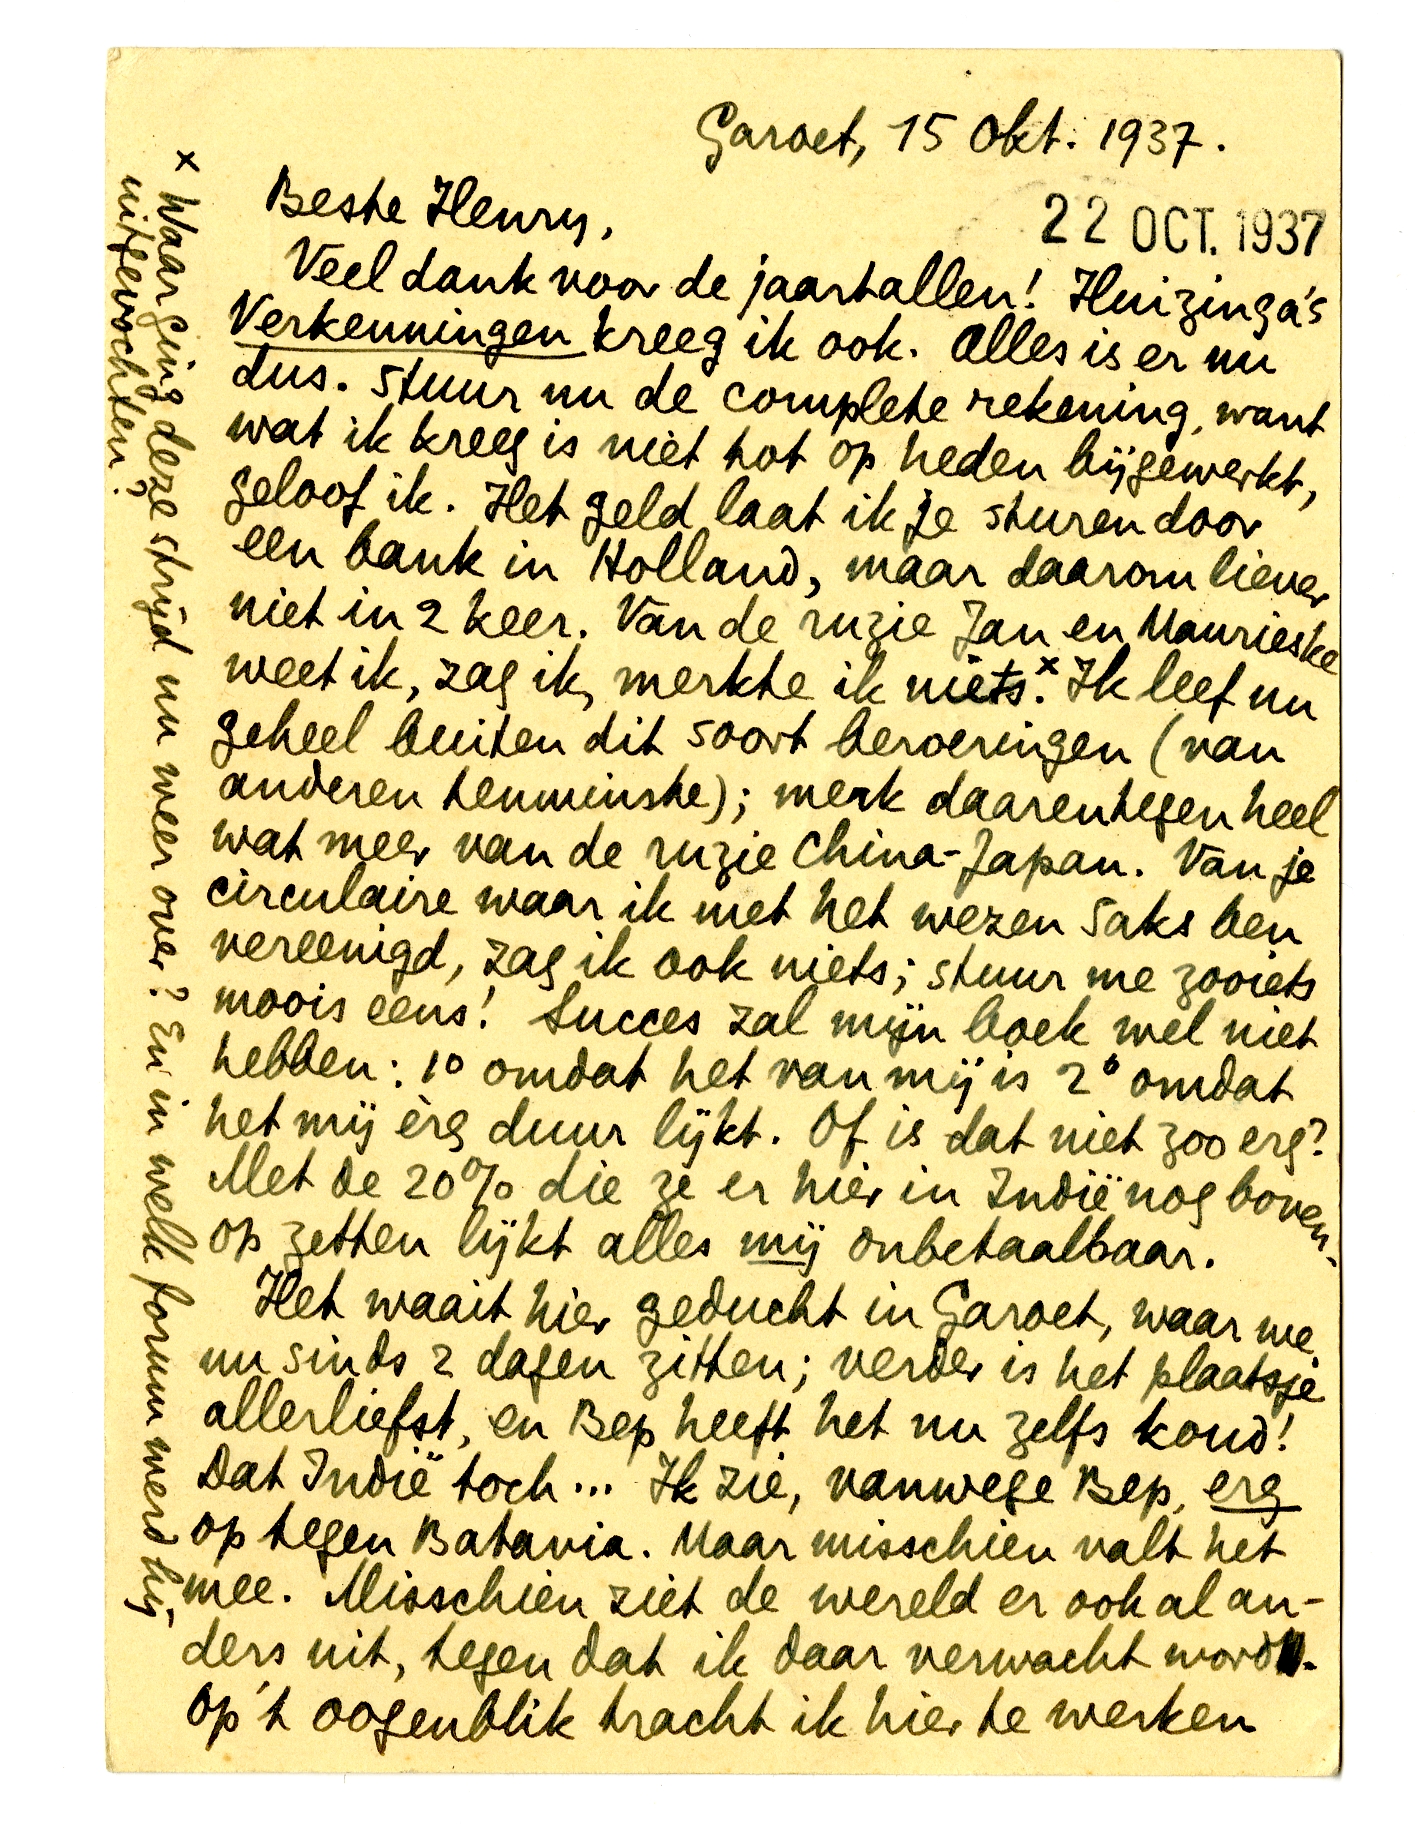 Garoet, 15 Okt. 1937.
22 OCT. 1937
Beste Henry,
Veel dank voor de jaartallen! Huizinga's
Verkenningen kreeg ik ook. Alles is er nu
dus. Stuur nu de complete rekening, want
wat ik kreeg is niet tot op heden bijgewerkt,
geloof ik. Het geld laat ik je sturen door
een bank in Holland, maar daarom liever
niet in 2 keer. Van de ruzie Jan en Maurieske
weet ik, zag ik, merkte ik niets.x Ik leef nu
geheel buiten dit soort beroeringen (van
anderen tenminste); merk daarentegen heel
wat meer van de ruzie China-Japan. Van je
circulaire waar ik met het wezen Saks ben
vereenigd, zag ik ook niets; stuur me zooiets
moois eens! Succes zal mijn boek wel niet
hebben: 1o omdat het van mij is 2o omdat
het mij èrg duur lijkt. Of is dat niet zoo erg?
Met de 20% die ze er hier in Indië nog boven-
op zetten lijkt alles mij onbetaalbaar.
Het waait hier geducht in Garoet, waar we
nu sinds 2 dagen zitten; verder is het plaatsje
allerliefst, en Bep heeft het nu zelfs koud!
Dat Indië toch... Ik zie, vanwege Bep, erg
op tegen Batavia. Maar misschien valt het
mee. Misschien ziet de wereld er ook al an-
ders uit, tegen dat ik daar verwacht word.
Op 't oogenblik tracht ik hier te werken
x Waar ging deze strijd nu weer over? En in welk forum werd hij
uitgevochten?